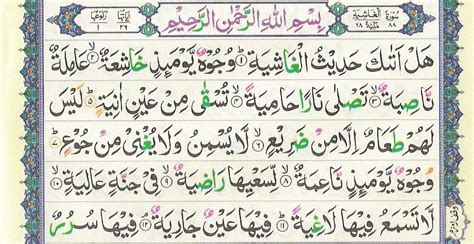 سُوْرَةُ الْغَاشِيَةِ ٨٨ مَكِّيَّةٌ ٦٨
بِسْمِ اللّٰهِ الرَّحْمٰنِ الرَّحِيْمِ
اٰيَاتُهَا ٢٦ رُكُوْعُهَا ١
هَلْ اَتٰىكَ حَدِيْثُ الْغَاشِيَةِ ۝١ وُجُوْهٌ يَّوْمَىِٕذٍ خَاشِعَةٌ ۝٢ عَامِلَةٌ
نَّاصِبَةٌ ۝٣ تَصْلٰى نَارًا حَامِيَةً ۝٤ تُسْقٰى مِنْ عَيْنٍ اٰنِيَةٍ ۝٥ لَيْسَ
لَهُمْ طَعَامٌ اِلَّا مِنْ ضَرِيْعٍ ۝٦ لَّا يُسْمِنُ وَلَا يُغْنِيْ مِنْ جُوْعٍ ۝٧
وُجُوْهٌ يَّوْمَىِٕذٍ نَّاعِمَةٌ ۝٨ لِّسَعْيِهَا رَاضِيَةٌ ۝٩ فِيْ جَنَّةٍ عَالِيَةٍ ۝١٠
لَّا تَسْمَعُ فِيْهَا لَاغِيَةً ۝١١ فِيْهَا عَيْنٌ جَارِيَةٌ ۝١٢ فِيْهَا سُرُرٌ